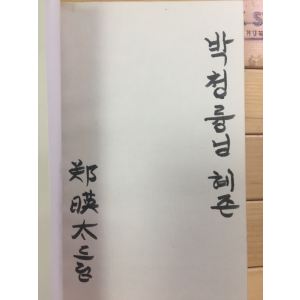 박청륭님 혜존
郑暎太드림